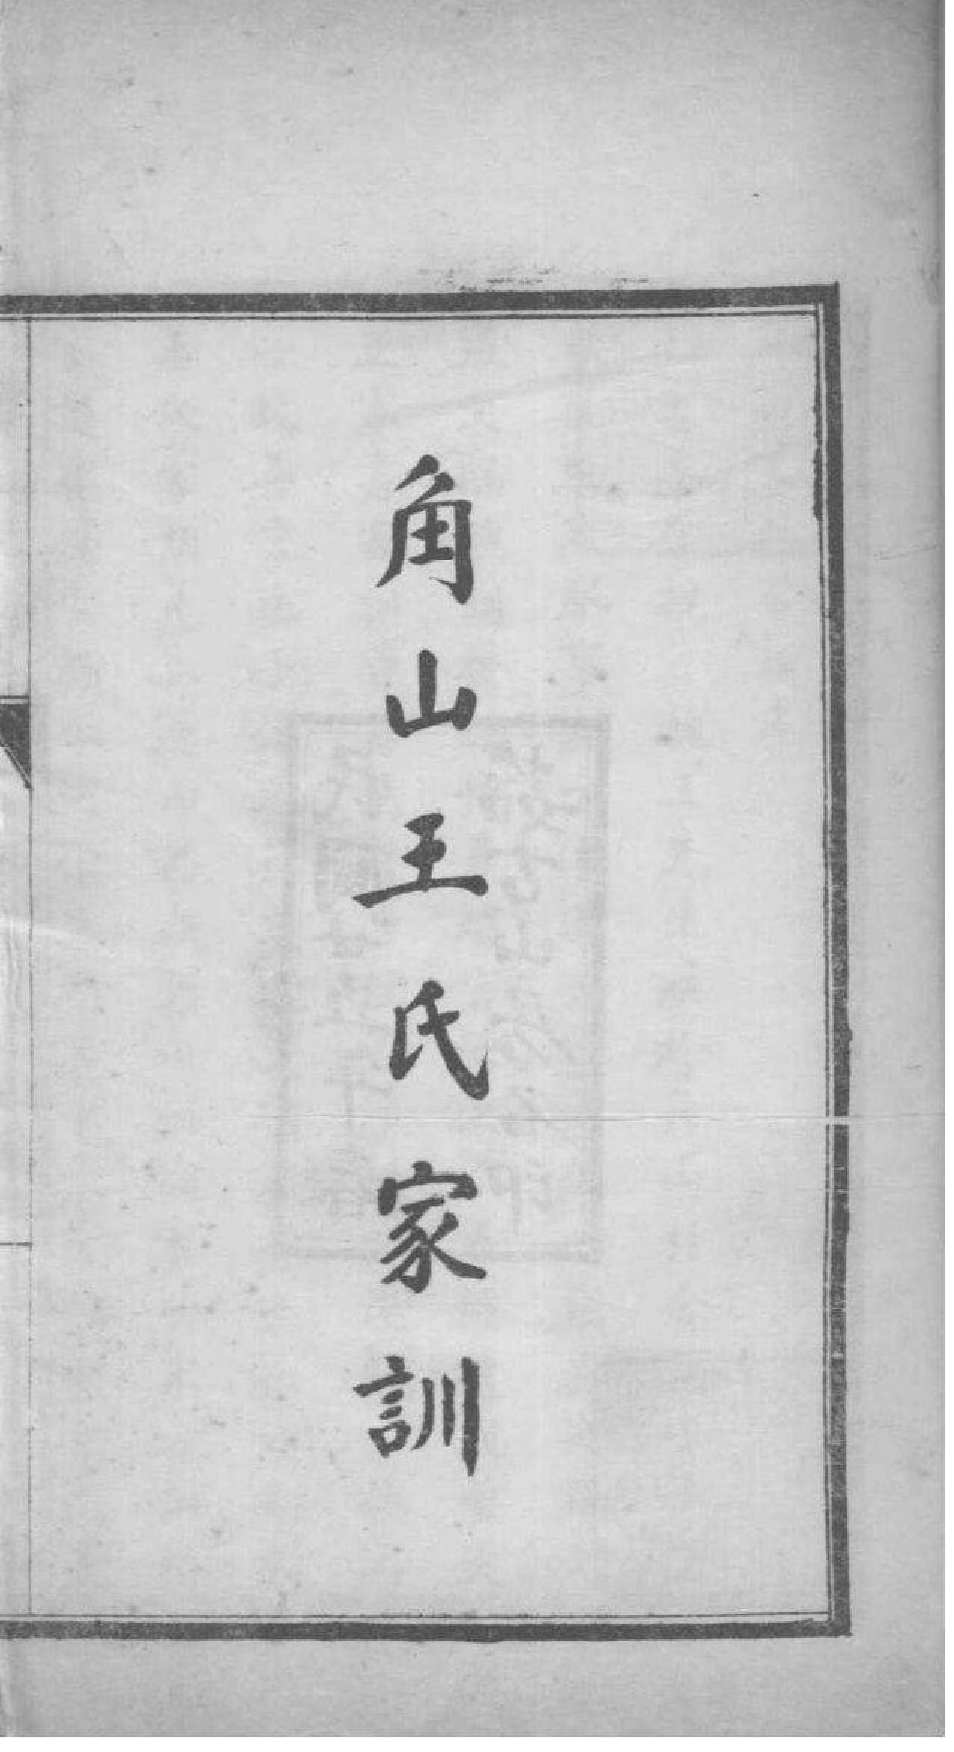 角山王氏家訓